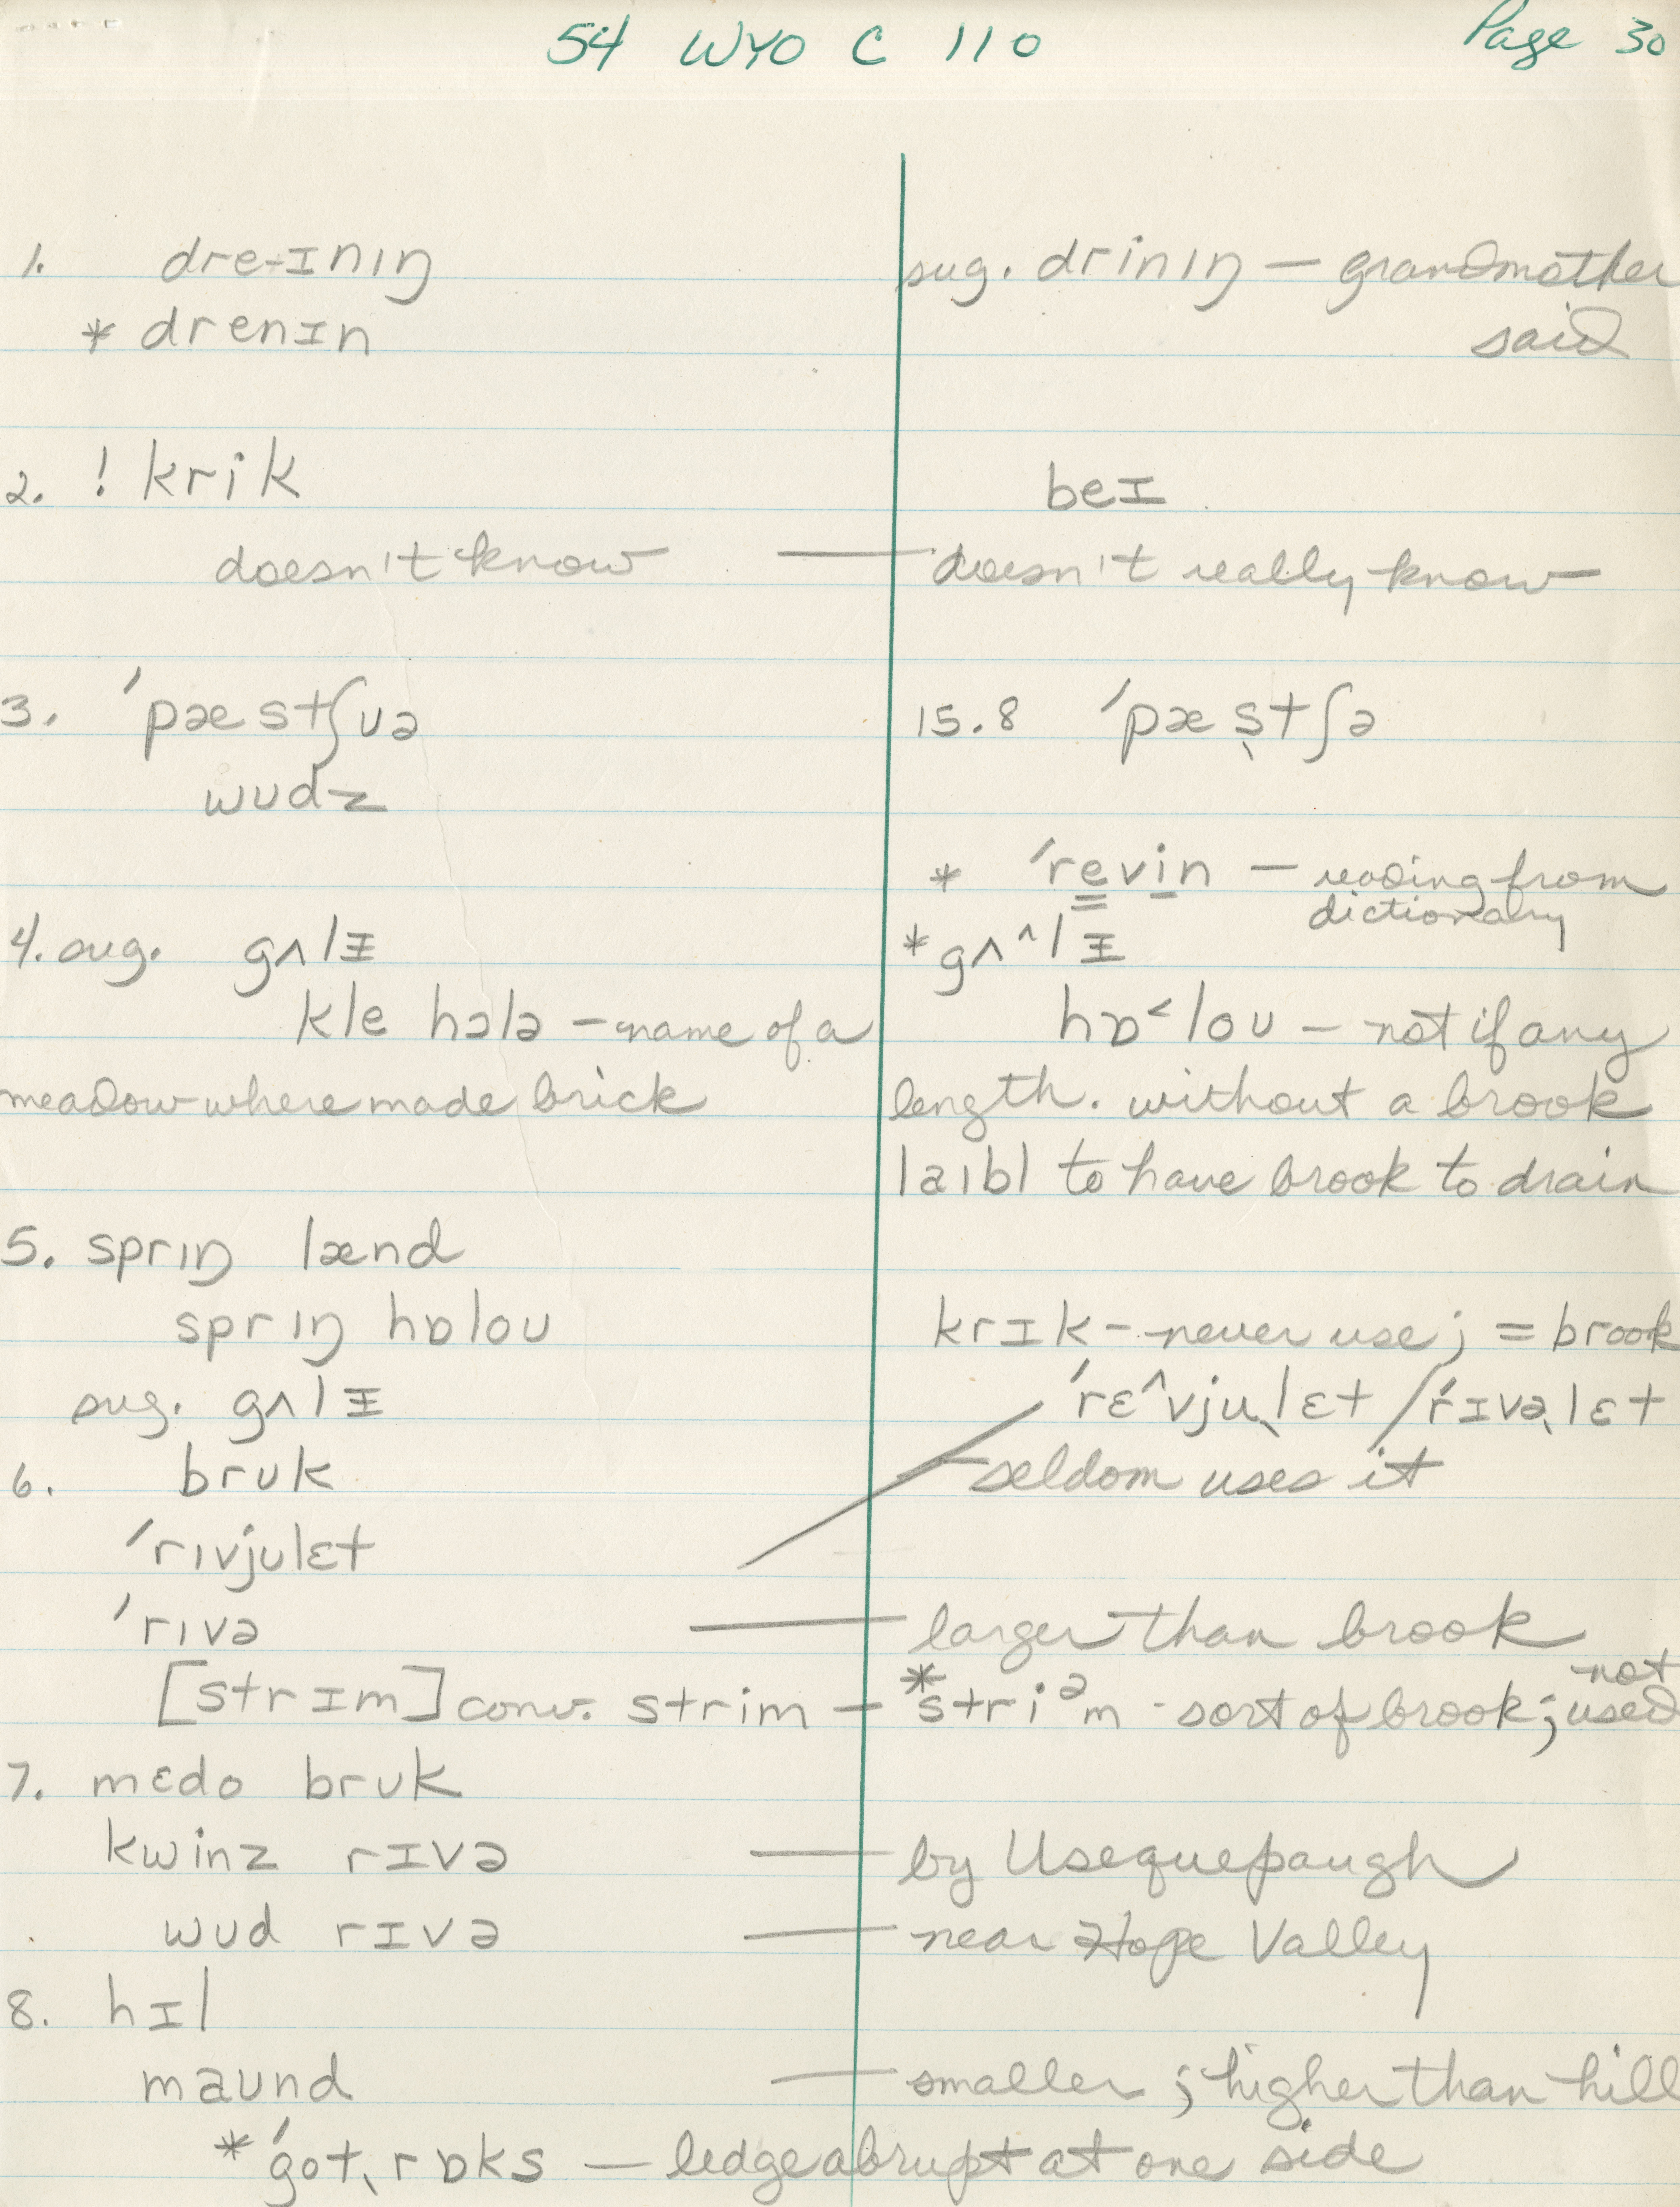 54 WYO C 110 Page 30
1. dre-ɪnıŋ sug. drinıŋ — grandmother
* drenɪn said
2. ! krik beɪ
doesn't know — doesn't really know
3. ˈpæstʃʊə 15.8 ˈpæs̩tʃə
wʊdz
* ˈrevin — reading from
dictionary
4. sug. gʌlɪ *gʌ^lɪ
kle hɔlə — name of a hɒ˂loʊ — not if any
meadow where made brick length. without a brook
laıbl to have brook to drain
5. sprıŋ lænd
sprıŋ hɒloʊ krɪk - never use; = brook
sug. gʌlɪ ˈrɛ^vjuˌlɛt / ˈrɪvəˌlɛt
6. brʊk — seldom uses it
ˈrıvjʊlɛt
ˈrıvə — larger than brook
not
[strɪm] conv. strim — *striᵊm - sort of brook; used
7. mɛdo brʊk
kwinz rɪvə — by Usequepaugh
wʊd rɪvə — near Hope Valley
8. hɪl
maʊnd — smaller; higher than hill
* ˈgotˌrɒks — ledge abrupt at one side